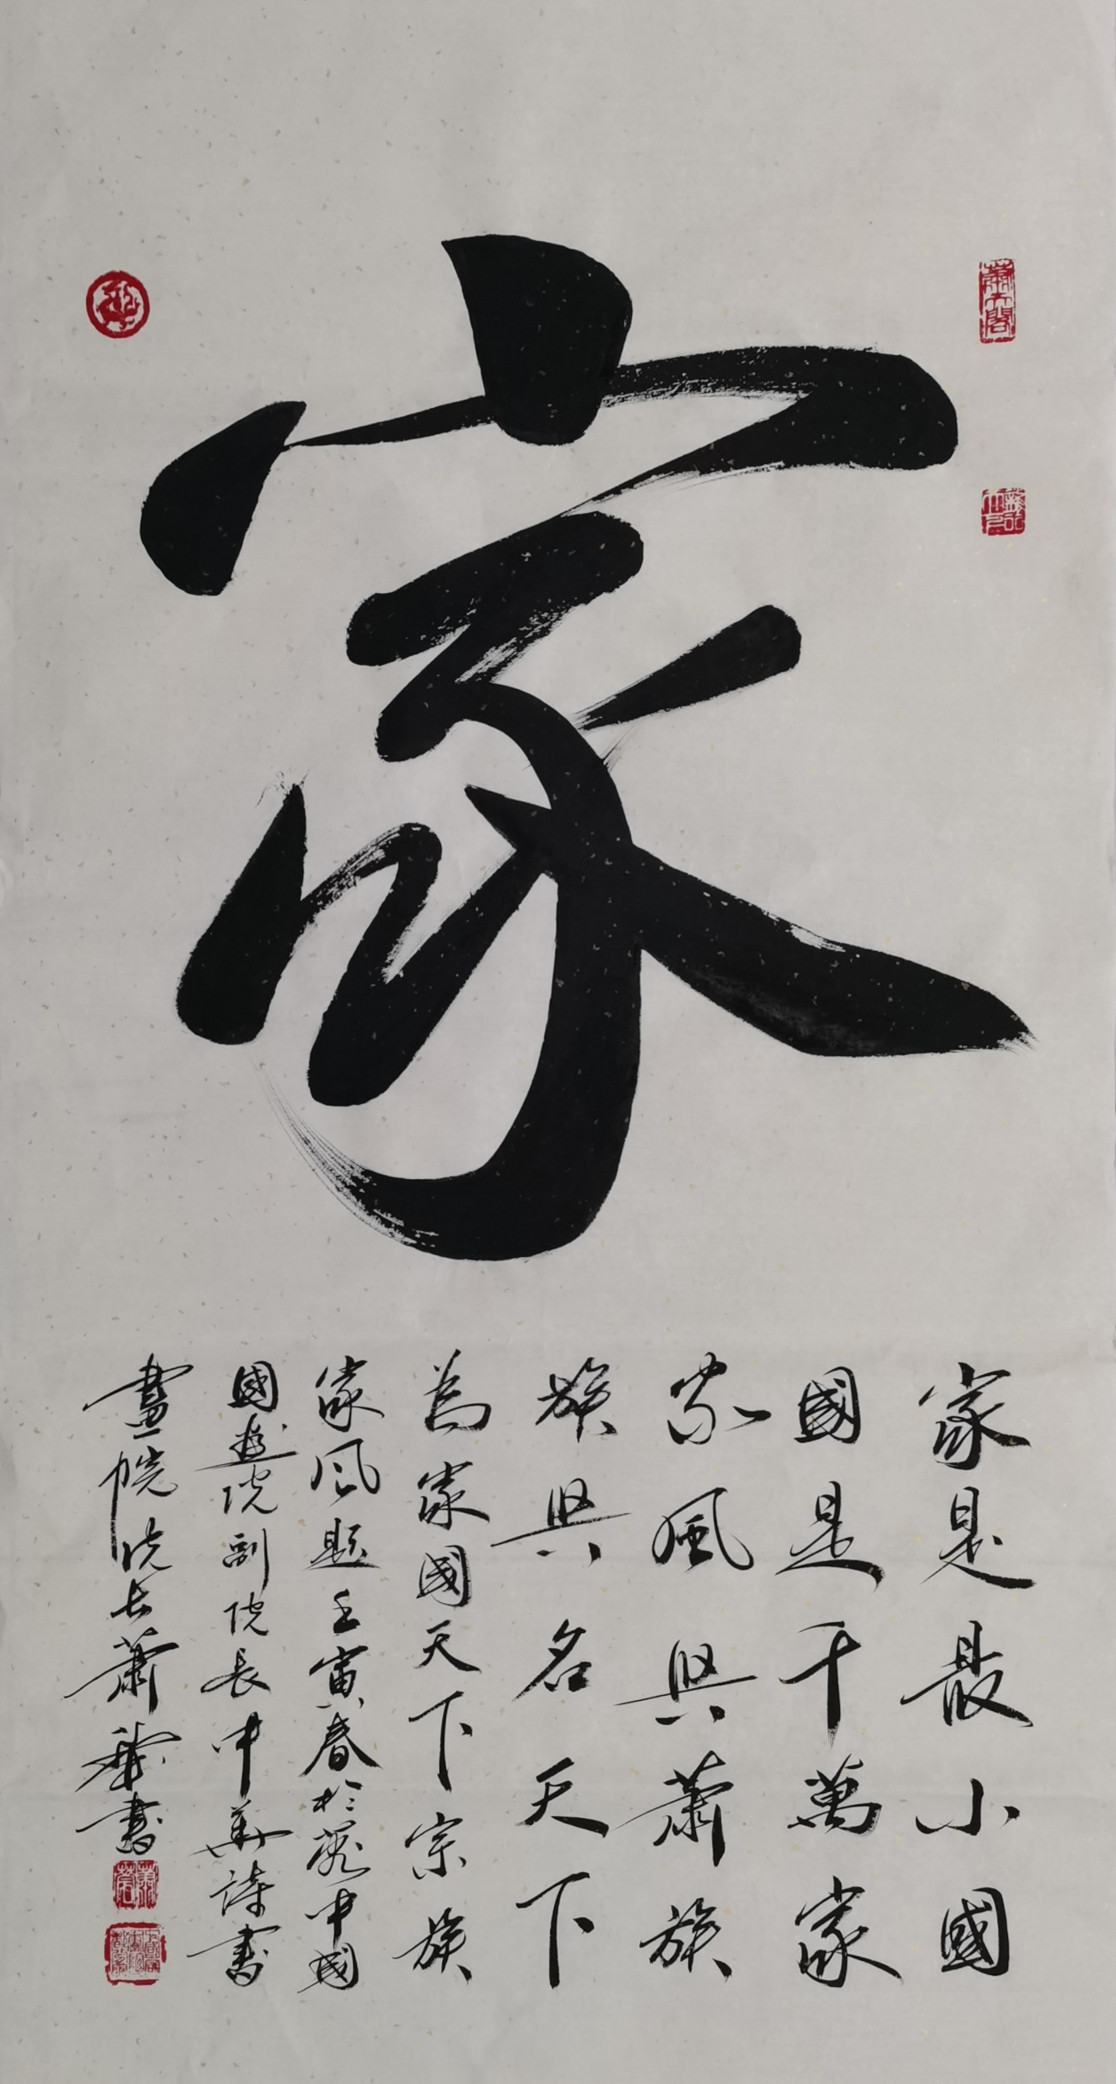 家
家是最小國
國是千萬家
家風興蕭族
族興名天下
為家國天下宗族
家風題壬寅春於 中國
國 院副院長中華詩書
畫院院長蕭 書
蕭 閣